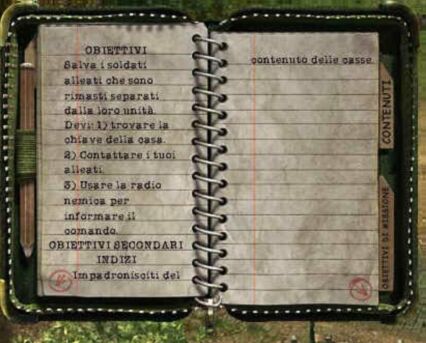 OBIETTIVI
Salva i soldati
alleati che sono
rimasti separati
dalla loro unità.
Devi: 1) trovare la
chiave della casa.
2) Contattare i tuoi
alleati.
3) Usare la radio
nemica per
informare il
comando.
OBIETTIVI SECONDARI
INDIZI
Impadronisciti del
contenuto delle casse.
CONTENUTI
OBIETTIVI DI MISSIONE